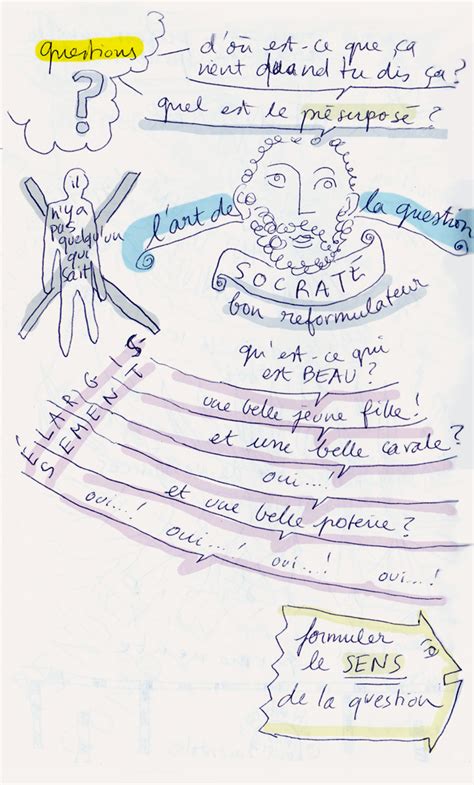 questions
?
d'où est-ce que ça
vient quand tu dis ça?
quel est le présuposé?
il
n'y a
pas
quelqu'un
qui
sait
l'art de
la question
SOCRATE
bon reformulateur
ÉLARGIS
SEMENT
qu'est-ce qui
est BEAU?
une belle jeune fille!
et une belle cavale?
oui...!
et une belle poterie?
oui...! oui...! oui...! oui...!
formuler
le SENS
de la question